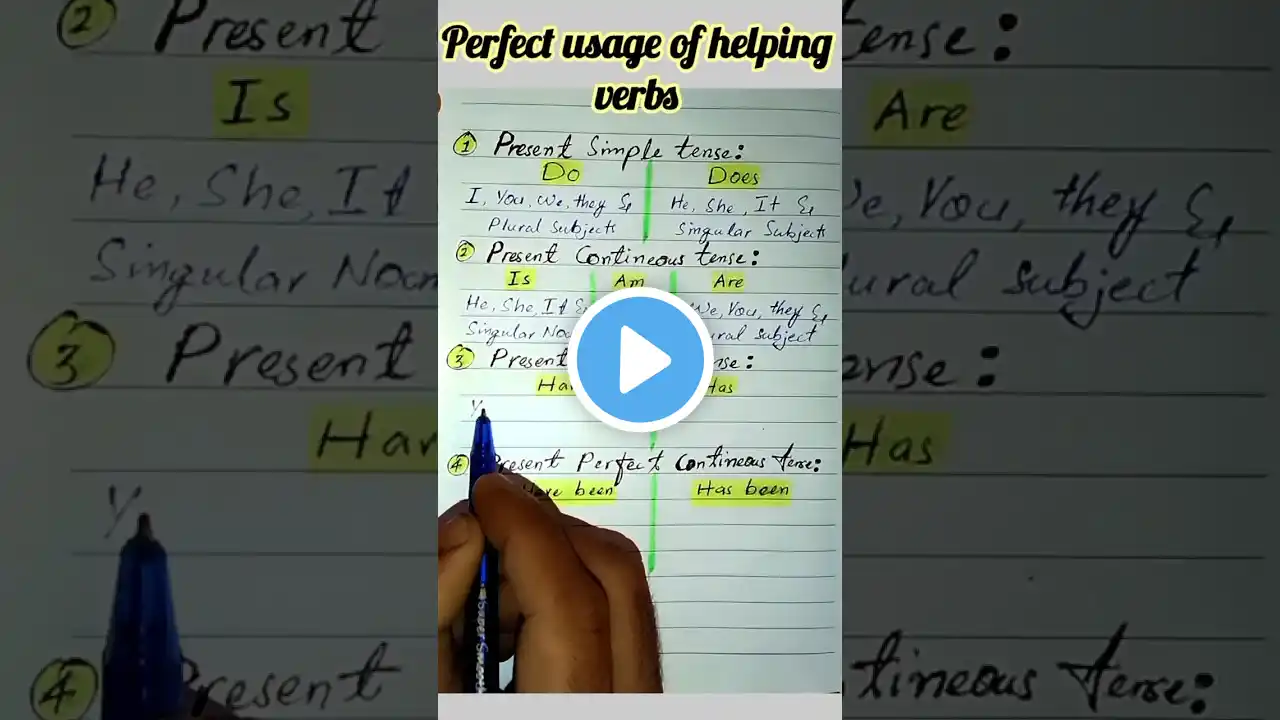 Perfect usage of helping
verbs
1 Present Simple tense:
Do Does
I, You, We, they & He, She, It &
Plural Subjects Singular Subjects
2 Present Contineous tense:
Is Am Are
He, She, It & We, You, they &
Singular subject
3 Present
Has
4 Present Perfect Contineous tense:
Have been Has been